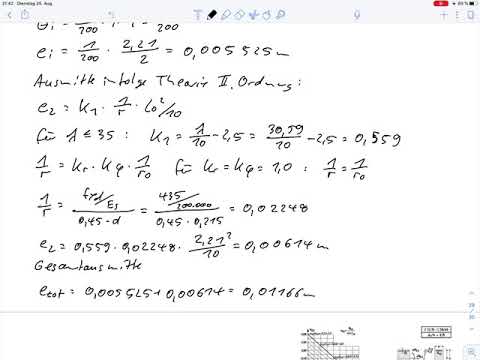 21:42 Dienstag 24. Aug.
e_i = 1/200 · 2,21/2 = 0,005525m
Ausmitte infolge Theorie II. Ordnung:
e_2 = K_1 · 1/r · l_0²/10
für λ ≤ 35 : K_1 = λ/10 - 2,5 = 30,59/10 - 2,5 = 0,559
1/r = K_r · K_φ · 1/r_0 für K_r = K_φ = 1,0 : 1/r = 1/r_0
1/r = (f_yd/E_s)/(0,45·d) = (435/200.000)/(0,45·0,215) = 0,02248
e_2 = 0,559 · 0,02248 · 2,21²/10 = 0,00614m
Gesamtausmitte
e_tot = 0,005525 + 0,00614 = 0,01166m